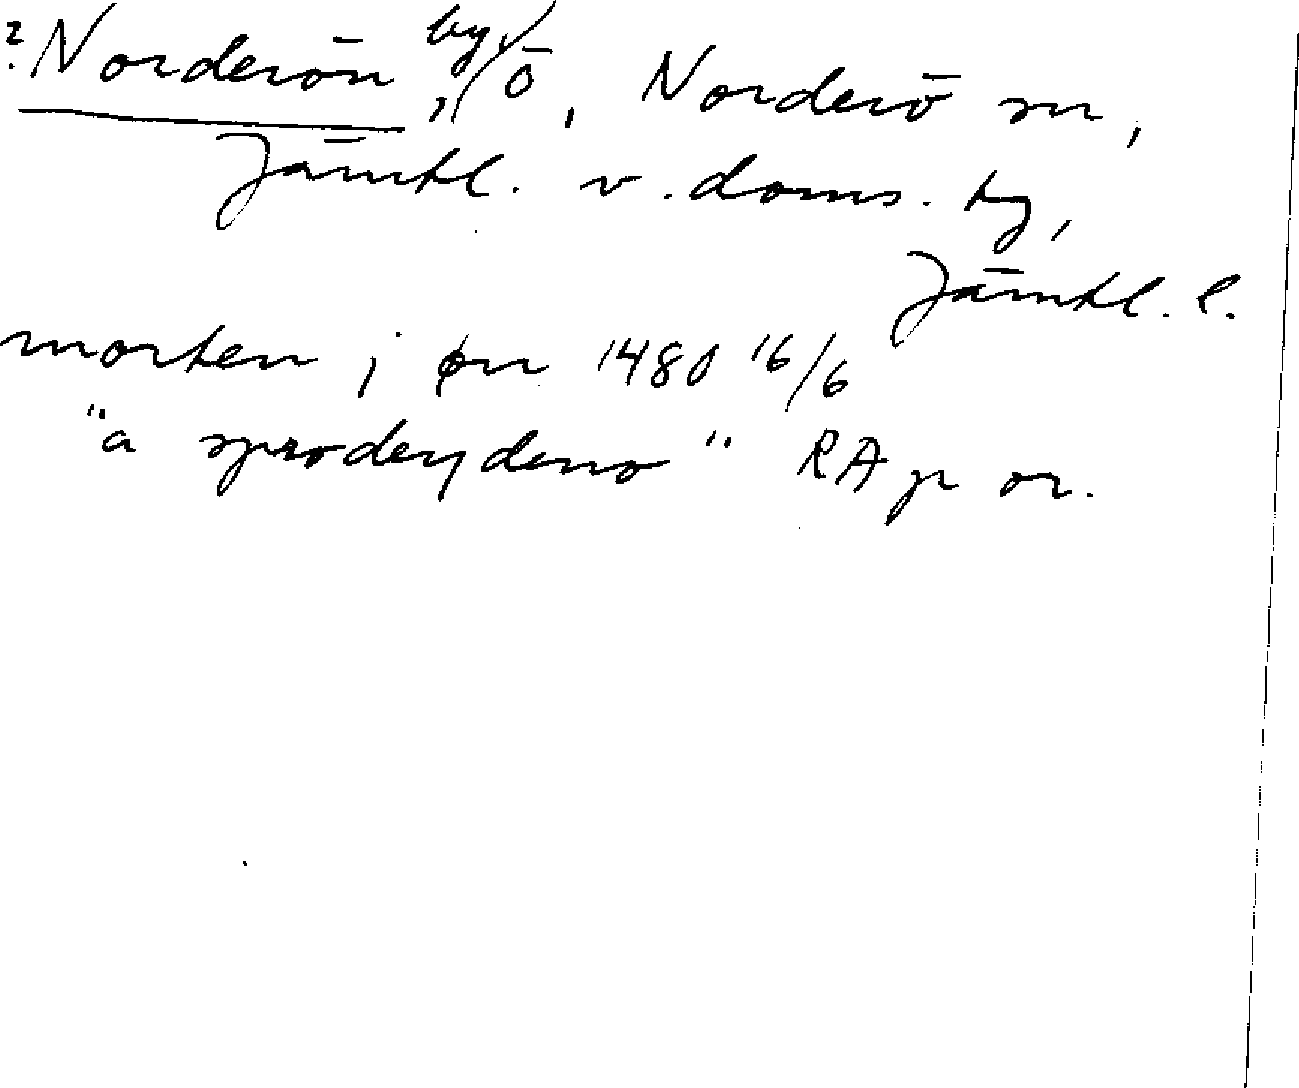 ? Norderön, by, ö, Norderö sn,
Jämtl. v. doms. tg,
Jämtl. l.
morten j øn 1480 16/6
"a sproderydeno" RAp or.